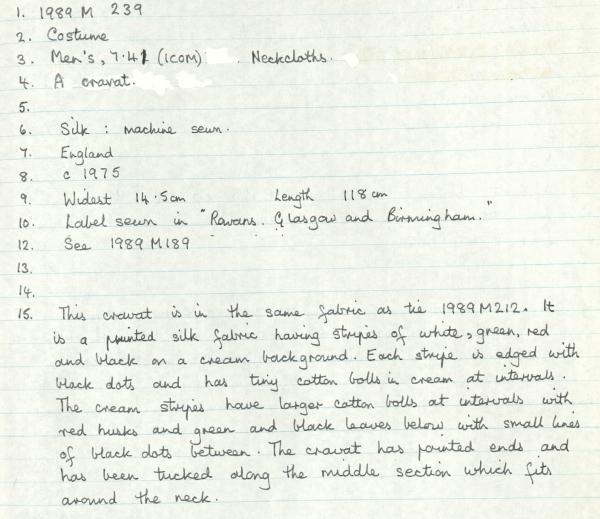 1. 1989 M 239
2. Costume
3. Men's, 7.41 (ICOM) . Neckcloths.
4. A cravat.
5.
6. Silk : machine sewn.
7. England
8. c 1975
9. Widest 14.5cm Length 118 cm
10. Label sewn in "Rowans. Glasgow and Birmingham."
12. See 1989 M189
13.
14.
15. This cravat is in the same fabric as tie 1989M212. It
is a printed silk fabric having stripes of white, green, red
and black on a cream background. Each stripe is edged with
black dots and has tiny cotton bolls in cream at intervals.
The cream stripes have larger cotton bolls at intervals with
red husks and green and black leaves below with small lines
of black dots between. The cravat has pointed ends and
has been tucked along the middle section which fits
around the neck.